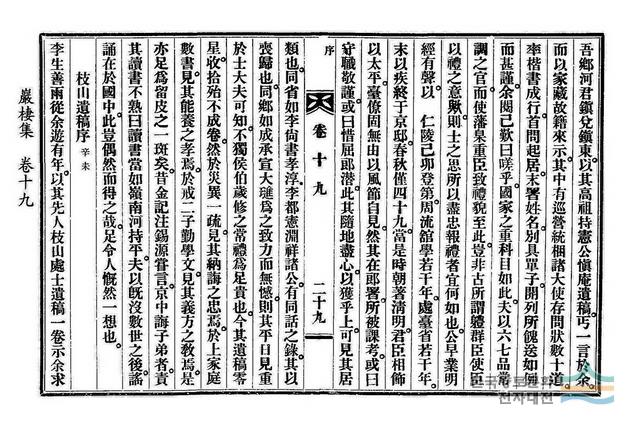 吾鄕河君鎭兌鎭東以其高祖持憲公愼庵遺稿丐一言於余
而以家藏故籍來示其中有巡營統梱諸大使存問狀數十道
率楷書成行首問起居末署姓名別具單子開列所餽送如例
而甚謹余閱己歎曰嗟乎國家之重科目如此夫以六七品常
調之官而使藩臬重臣致禮貌至此豈非古所謂體群臣使臣
以禮之意歟則士之思所以盡忠報禮者宜何如也公早業明
經有聲以 仁陵己卯登第周流舘學若干年處臺省若干年
末以疾終于京邸春秋僅四十九當是時朝著淸明君臣相飾
以太平臺僚固無由以風節自見然其在郞署所被課考或曰
守職敬謹或曰惜屈郞潜此其隨地盡心以獲乎上可見其居
序
卷十九
二十九
類也同省如李尙書孝淳李都憲淵祥諸公有同話之錄其以
喪歸也同鄕如成承宣大璡爲之致力而無憾則其平日見重
於士大夫可知不獨侯伯歲修之常禮爲足貴也今其遺稿零
星收拾殆不成卷然於災異一疏見其納誨之忠焉於上家庭
數書見其能養之孝焉於戒二子勤學文見其義方之敎焉是
亦足爲留皮之一斑矣昔金記注錫源嘗言京中誨子弟者責
其讀書不熟曰讀書當如嶺南河持平夫以旣沒數世之後謠
誦在於國中此豈偶然而得之哉足令人慨然一想也
枝山遺稿序 辛未
李生善兩從余遊有年以其先人枝山處士遺稿一卷示余求
巖棲集 卷十九
전자대전